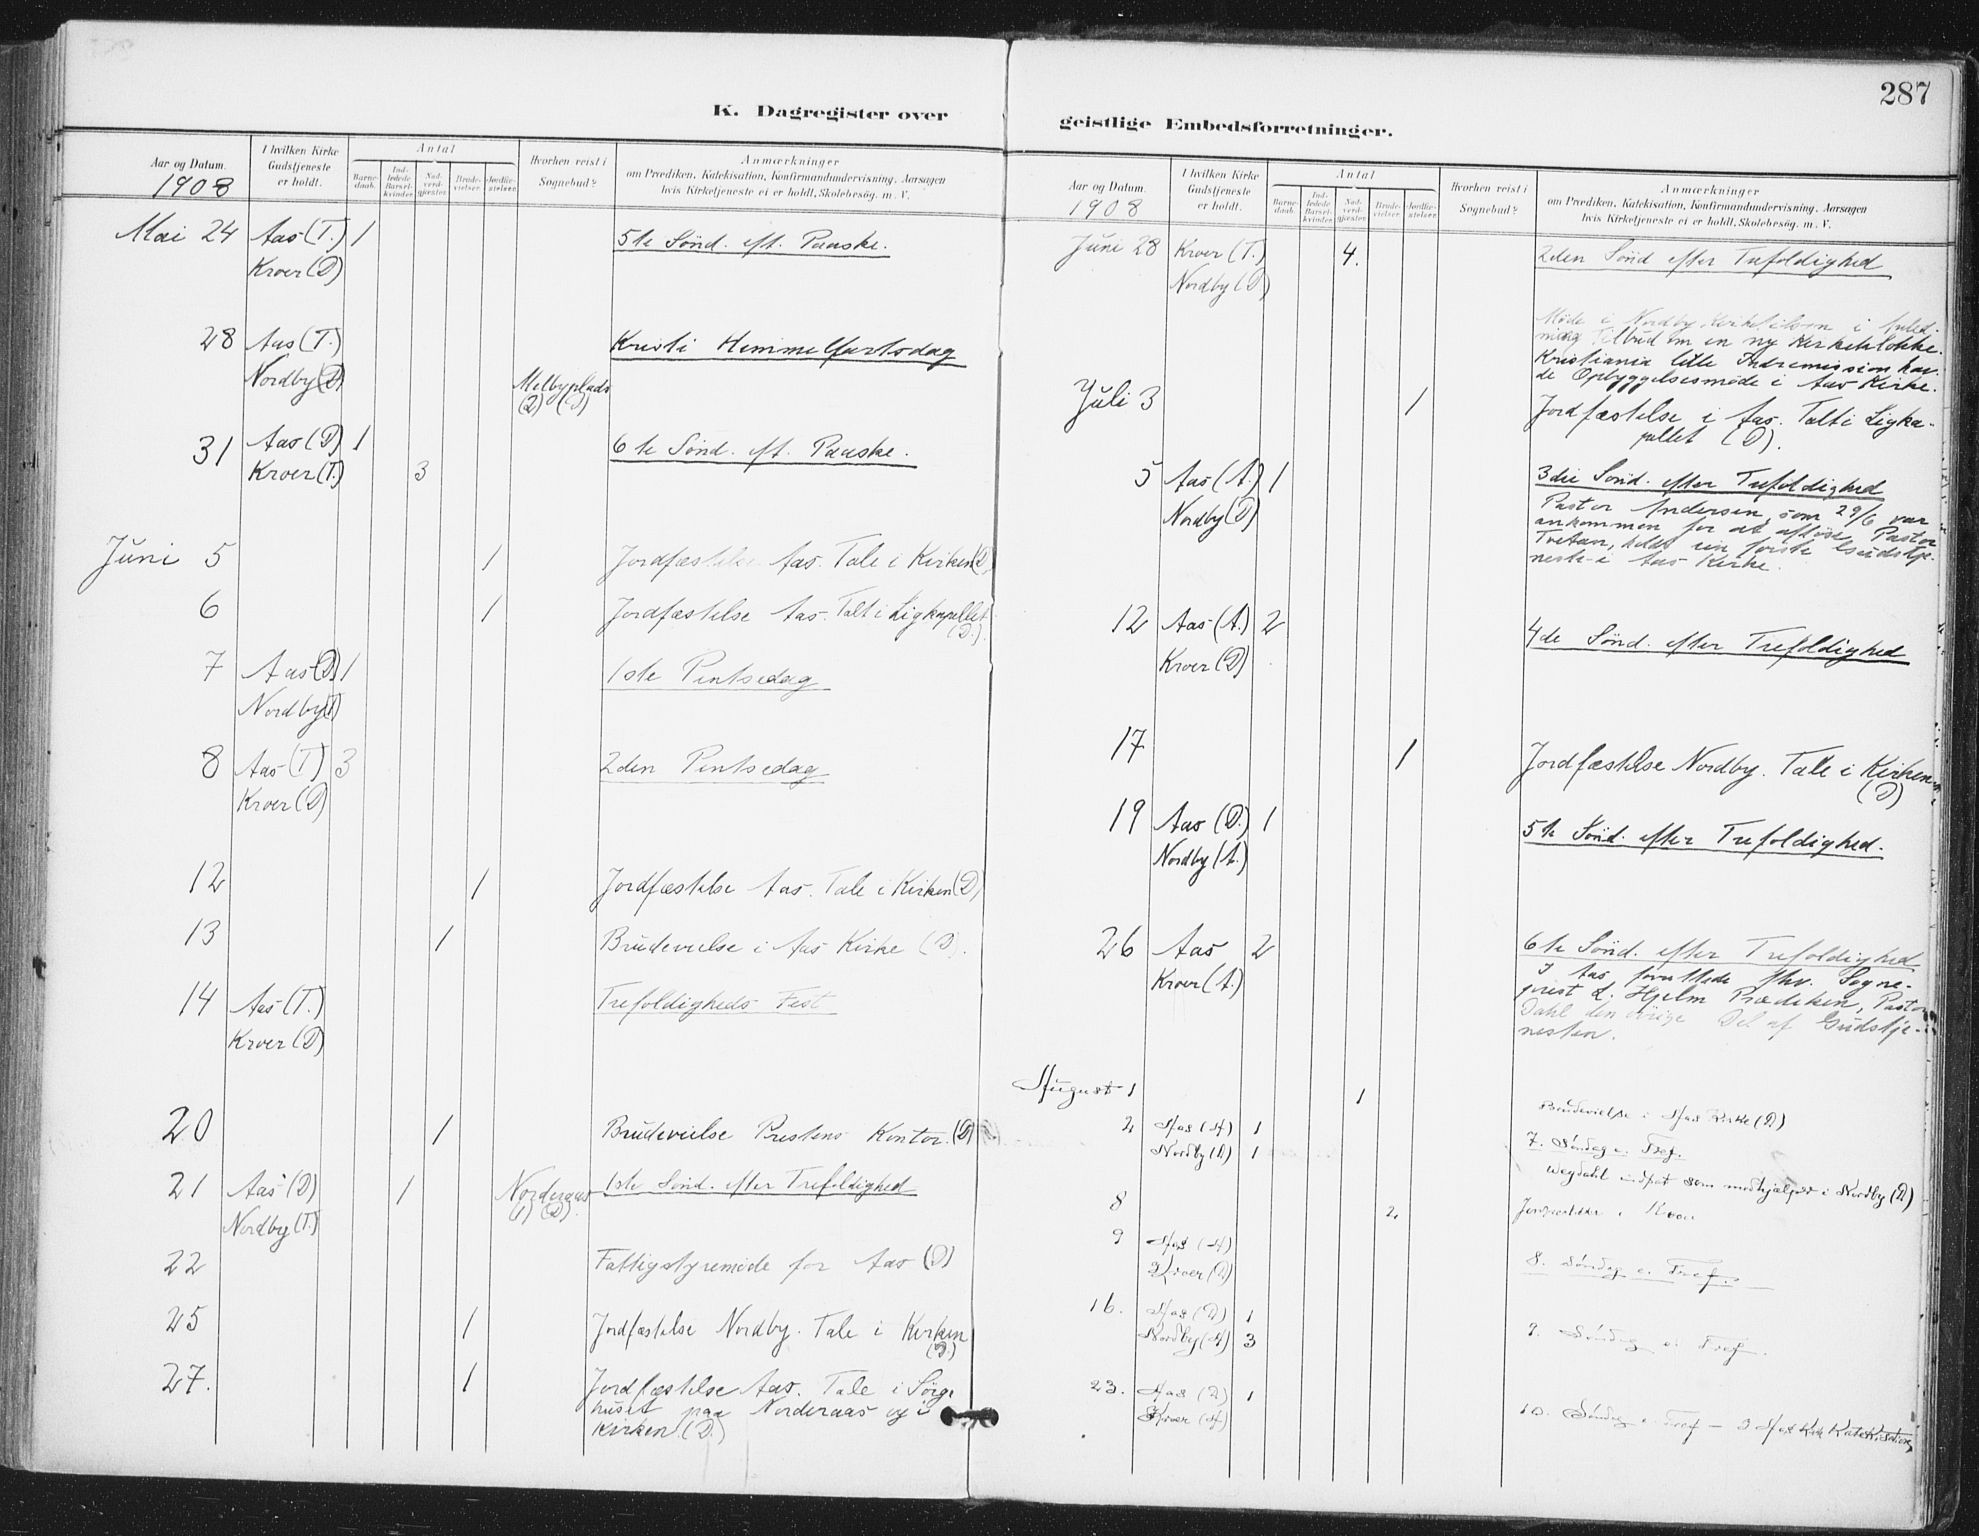 287
K. Dagregister over
Aar og Datum.
I hvilken Kirke Gudstjeneste er holdt.
Antal
Barnedaab.
Indledede Barselkvinder.
Nadverdgjæster.
Brudevielser.
Jordfæstelser.
Hvorhen reist i Sognebud?
Anmærkninger
om Prædiken, Katekisation, Konfirmandundervisning, Aarsagen
hvis Kirketjeneste ei er holdt, Skolebesøg, m. V.
1908
Mai 24 Aas (T.) 1 5te Sönd. eft. Paaske.
Kroer (D)
28 Aas (T.) Kristi Himmelfartsdag
Nordby (D) Melbyplads
(2) (D)
31 Aas (D) 1 6te Sönd. eft. Paaske.
Kroer (T.) 3
Juni 5 1 Jordfæstelse Aas. Tale i Kirken (D)
6 1 Jordfæstelse Aas. Talt i Ligkapellet
(D.)
7 Aas (D) 1 1ste Pintsedag
Nordby (T)
8 Aas (T) 3 2den Pintsedag
Kroer (D)
12 1 Jordfæstelse Aas. Tale i Kirken (D)
13 1 Brudevielse i Aas Kirke (D).
14 Aas (T.) Trefoldigheds Fest
Kroer (D)
20 1 Brudevielse Prestens Kontor. (D)
21 Aas (D) 1 Norderaas 1ste Sönd. efter Trefoldighed
Nordby (T.) (1) (D).
22 Fattigstyremöde for Aas (D)
25 1 Jordfæstelse Nordby. Tale i Kirken
(D.)
27. 1 Jordfæstelse Aas. Tale i Sörge
huset paa Norderaas og i
Kirken. (D.)
geistlige Embedsforretninger.
Aar og Datum.
I hvilken Kirke Gudstjeneste er holdt.
Antal
Barnedaab.
Indledede Barselkvinder.
Nadverdgjæster.
Brudevielser.
Jordfæstelser.
Hvorhen reist i Sognebud?
Anmærkninger
om Prædiken, Katekisation, Konfirmandundervisning, Aarsagen
hvis Kirketjeneste ei er holdt, Skolebesøg, m. V.
1908
Juni 28 Kroer (T.) 4. 2den Sönd efter Trefoldighed
Nordby (D)
Möde i Nordby Kirketilsyn i Anled-
ning Tilbud om en ny Kirkeklokke.
Kristiania lille Indremission hav-
de Opbyggelsesmöde i Aas Kirke.
Juli 3 1 Jordfæstelse i Aas. Talt i Ligka-
pellet (D).
5 Aas (A.) 1 3die Sönd. efter Trefoldighed
Nordby (D) Pastor Andersen, som 29/6 var
ankommen for at aflöse Pastor
Tvetan, holdt sin förste Gudstje-
neste i Aas Kirke.
12 Aas (A.) 2 4de Sönd. efter Trefoldighed
Kroer (D)
17 1 Jordfæstelse Nordby. Tale i Kirken
(D)
19 Aas (D.) 1 5te Sönd. efter Trefoldighed.
Nordby (A.)
26 Aas 2 6te Sönd. efter Trefoldighed
Kroer (A.) I Aas forrettede fhv. Sogne-
prest L. Hjelm Prædiken, Pastor
Dahl den övrige Del af Gudstje-
nesten.
August 1 1 Brudevielse i Aas Kirke (D)
2 Aas (A) 1 7. Söndag e. Tref.
Nordby (D) 1 Wegdahl indsat som medhjælper i Nordby (D)
8 2 Jordfæstelse i Kroer
9 Aas (A) 8. Söndag e. Tref.
Kroer (D)
16. Aas (D) 1
Nordby (A) 3 9. Söndag e. Tref.
23. Aas (D) 1
Kroer (A) 10. Söndag e. Tref – I Aas Kirke Katekisation